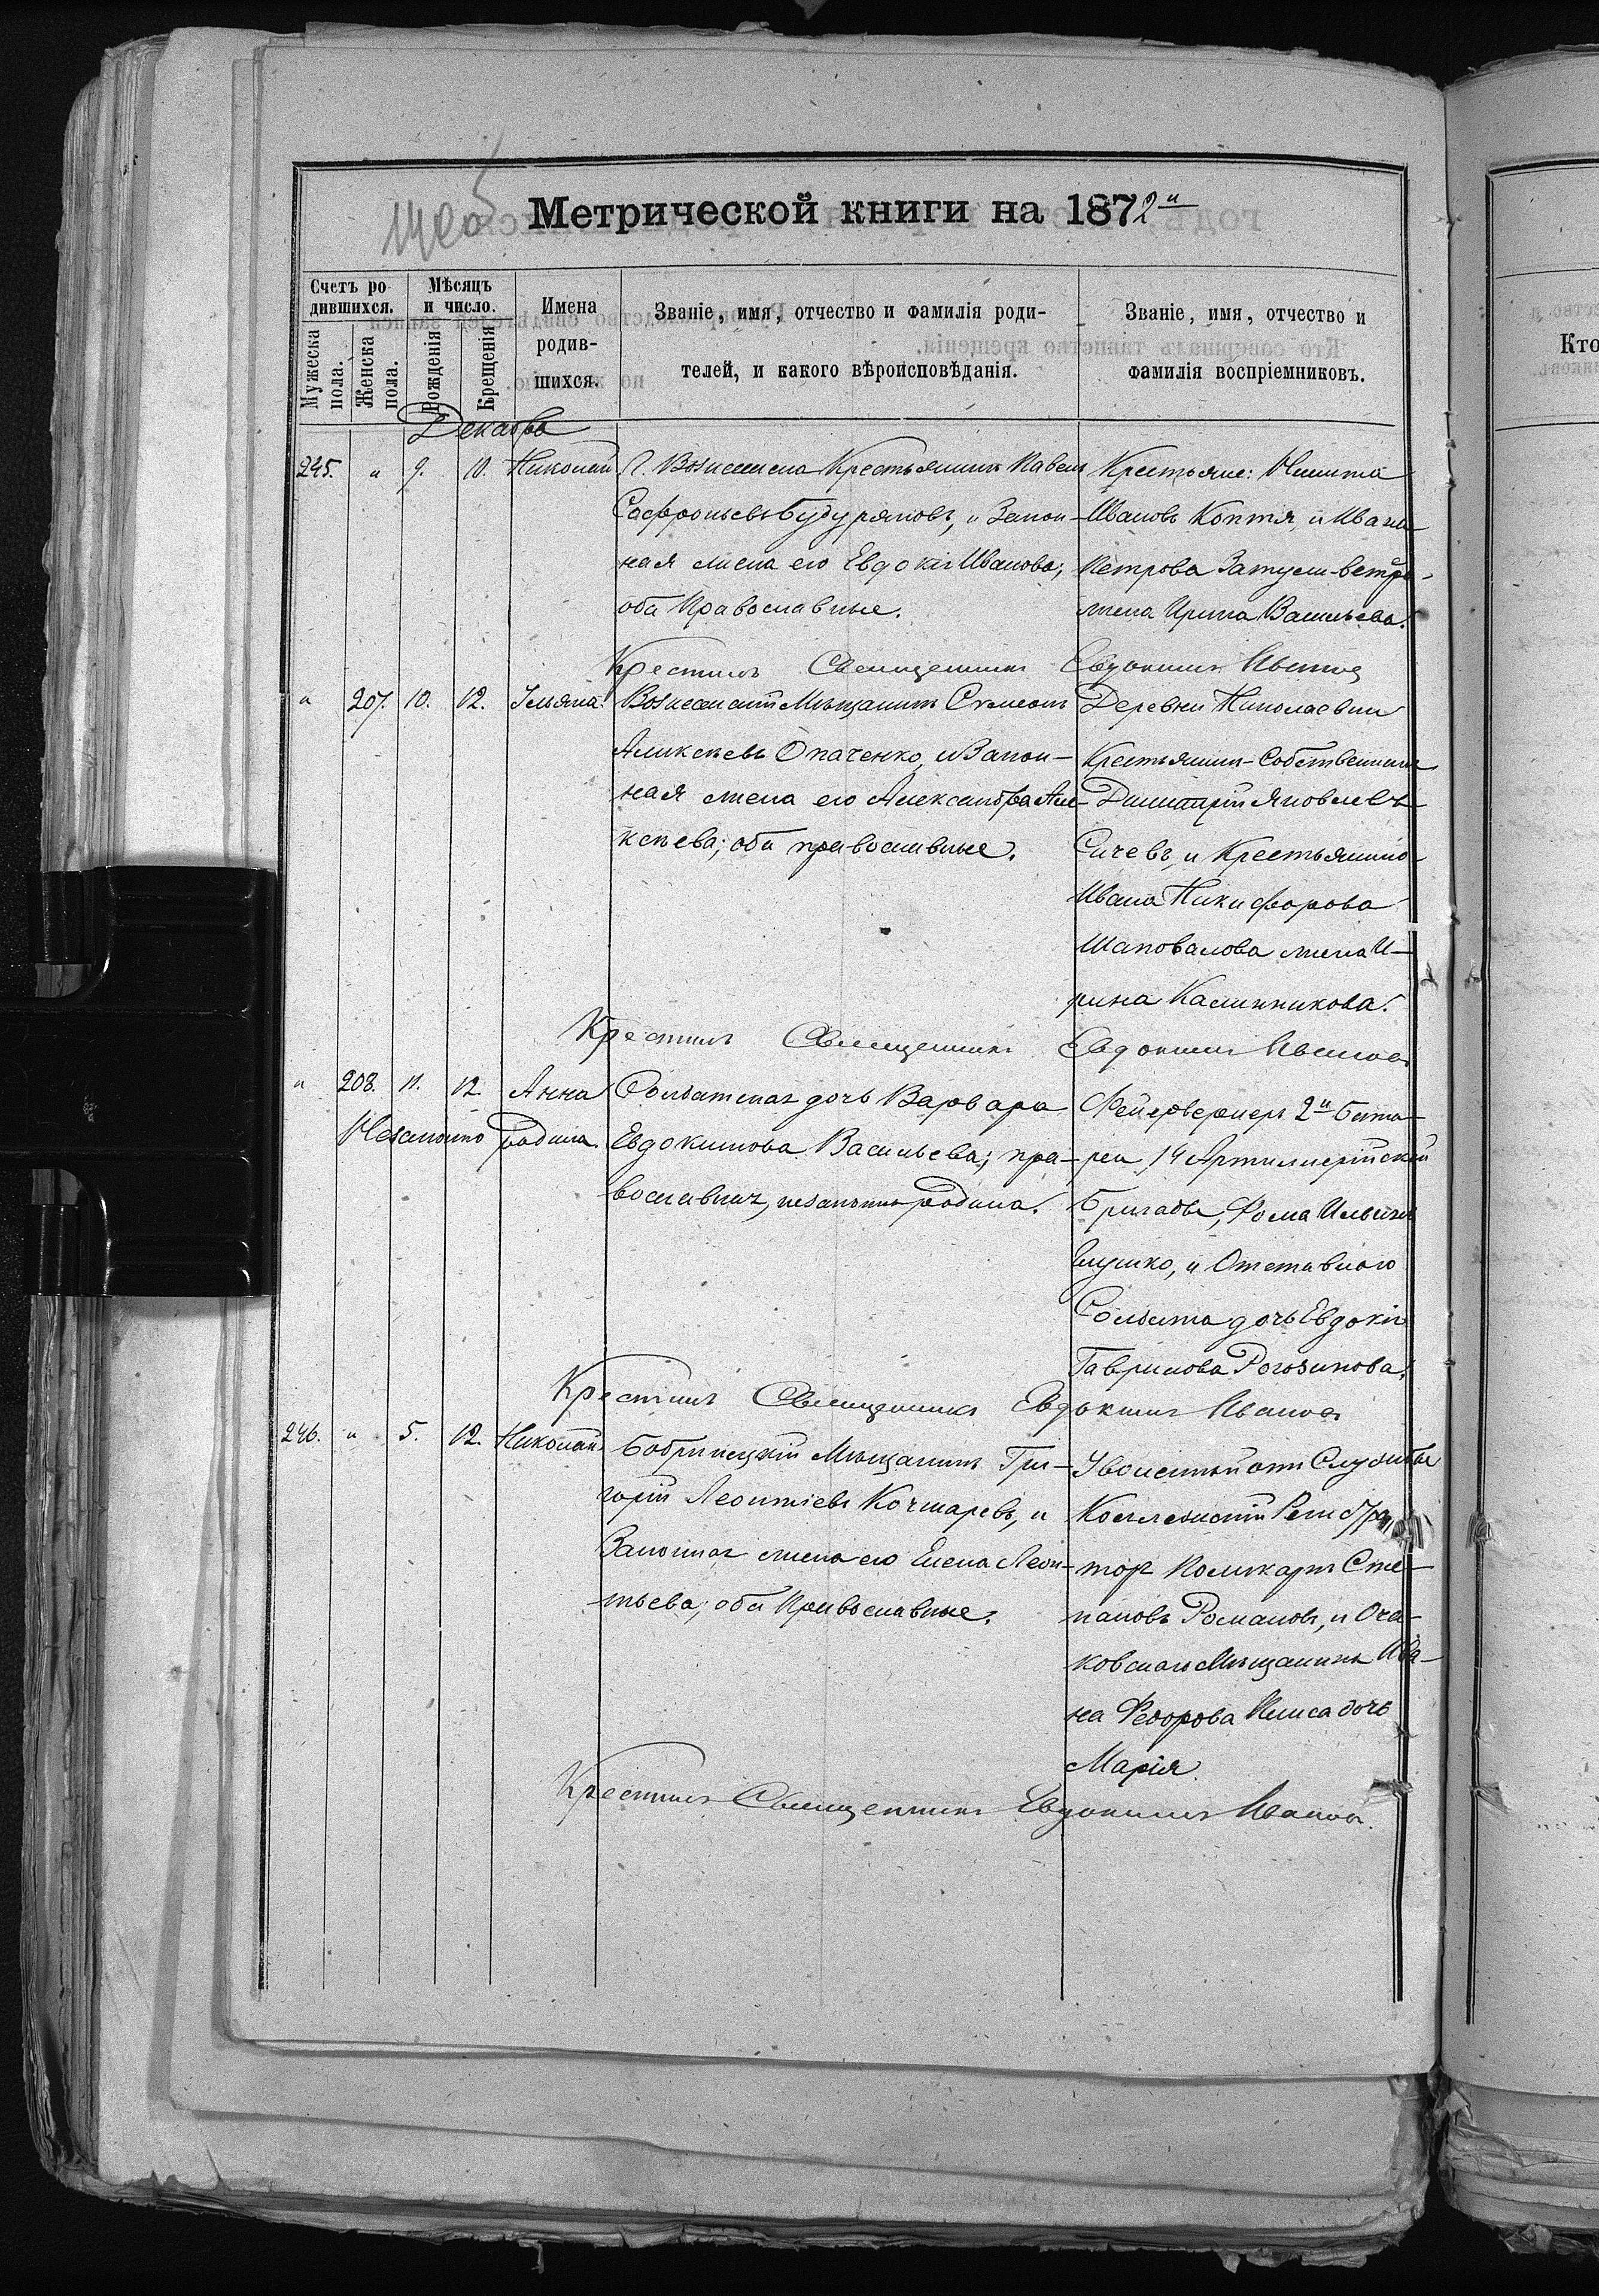 Метрической книги на 1872й
Счетъ ро
дившихся.
Мѣсяцъ
и число.
Имена
родив-
шихся.
Званіе, имя, отчество и фамилія роди-
телей, и какого вѣроисповѣданія.
Званіе, имя, отчество и
фамилія воспріемниковъ.
Мужеска
пола.
Женска
пола.
Рожденія
Крещенія
Декабрь
245. " 9. 10. Николай
Г. Вознесенска Крестьянинъ Павелъ
Софроньевъ Будуряновъ, и Закон-
ная жена его Евдокія Иванова;
оба Православные.
Крестьяне: Никита
Ивановъ Коптя, и Ивана
Петрова Затули-ветра
жена Ирина Васильева.
Крестилъ Священникъ Евдокимъ Ивановъ
" 207. 10. 12. Ульяна.
Вознесенскій Мѣщанинъ Сѵмеонъ
Алексѣевъ Опаченко, и Закон-
ная жена его Александра Але-
ксѣева; оба православные.
Деревни Николаевки
Крестьянинъ-Собственникъ
Димитрій Яковлевъ
Сичевъ, и Крестьянина
Ивана Никифорова
Шаповалова жена И-
рина Калинникова.
Крестилъ Священникъ Евдокимъ Ивановъ
" 208. 11. 12. Анна
Незаконно родила.
Солдатская дочь Варвара
Евдокимова Васильева; пра-
вославная, незаконно родила.
Фейерверкеръ 2й Бата-
реи 14 Артиллерійской
Бригады, Фома Ильинъ
Глушко, и Отставного
Солдата дочь Евдокія
Гаврилова Рогозинова.
Крестилъ Священникъ Евдокимъ Ивановъ
246. " 5. 12. Николай.
Бобринецкій Мѣщанинъ Гри-
горій Леонтіевъ Кочмаревъ, и
Законная жена его Елена Леон-
тьева; оба Православные.
Уволенный отъ Службы
Коллежскій Регистра-
торъ Поликарпъ Сте-
пановъ Романовъ, и Оча-
ковскаго Мѣщанина Ива-
на Федорова дочь
Марія.
Крестилъ Священникъ Евдокимъ Ивановъ.
Кто